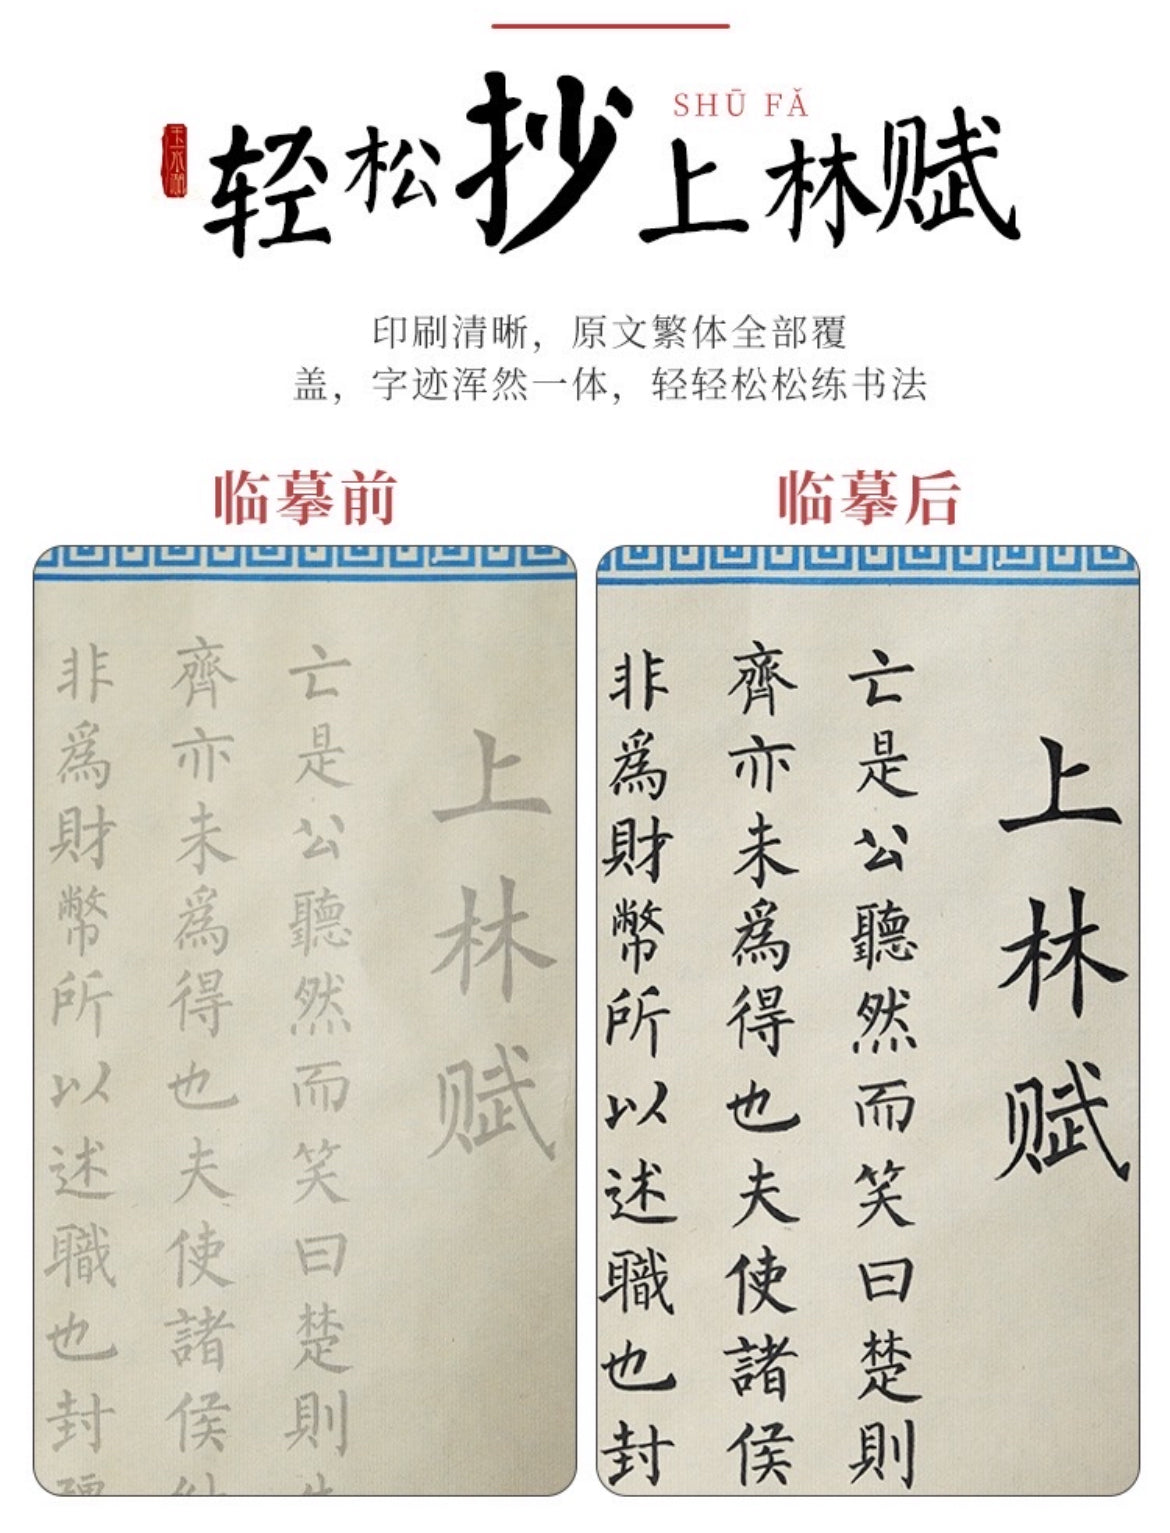 SHŪ FǍ
轻松抄上林赋
印刷清晰，原文繁体全部覆
盖，字迹浑然一体，轻轻松松练书法
临摹前
上林赋
亡是公聽然而笑曰楚則
齊亦未爲得也夫使諸侯
非爲財幣所以述職也封
临摹后
上林赋
亡是公聽然而笑曰楚則
齊亦未爲得也夫使諸侯
非爲財幣所以述職也封